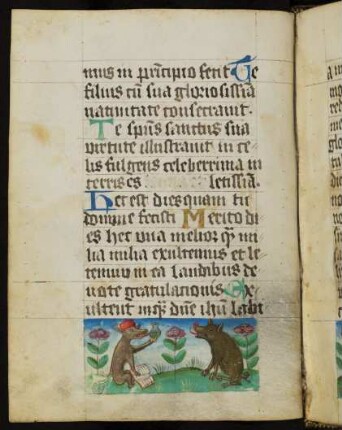 mus in principio fecit Te
filius cu sua gloriosissia
nativitate consecravit.
Te spus sanctus sua
virtute illustravit in ce
lis fulgens celeberrima in
terris es letissia.
Hec est dies quam tu
domine fecisti Merito di
es hec una melior q mi
lia milia exultemus et le
temur in ea laudibus de
vote gratulacionis Ex
ultent in dne ihu